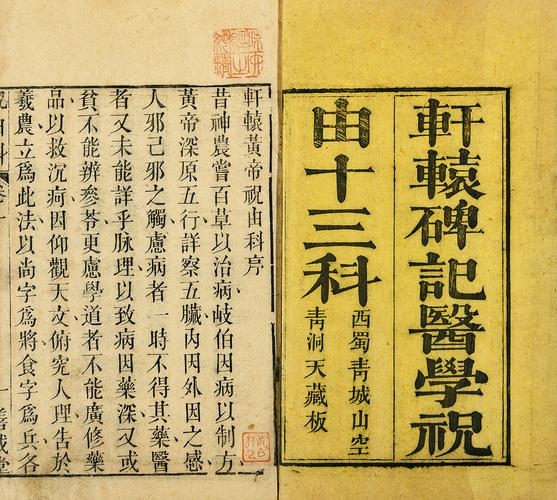 軒轅碑記醫學祝
由十三科
西蜀青城山空
青洞天藏板
軒轅黃帝祝由科序
昔神農嘗百草以治病岐伯因病以制方
黃帝深原五行詳察五臟內因外因之感
人邪己邪之觸慮病者一時不得其藥醫
者又未能詳乎脉理以致病因藥深又或
貧不能辨參苓更慮學道者不能廣修藥
品以救沉疴因仰觀天文俯究人理告於
羲農立爲此法以尚字爲將食字爲兵各